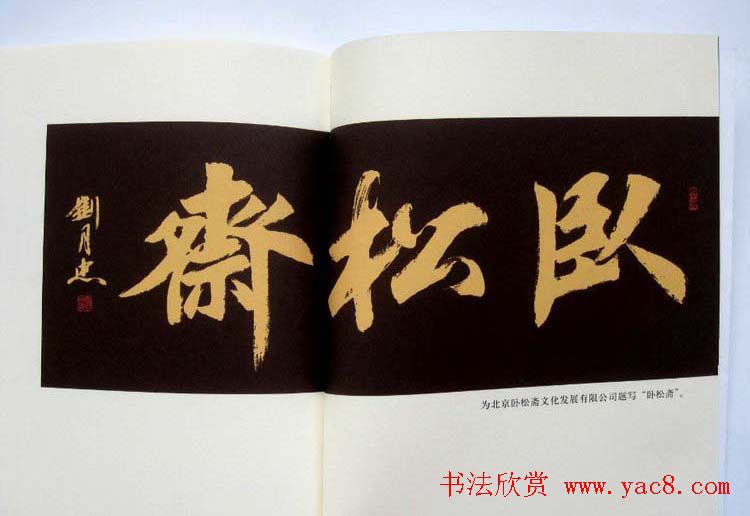 卧松斋
劉月忠
为北京卧松斋文化发展有限公司题写“卧松斋”。
书法欣赏 www.yac8.com